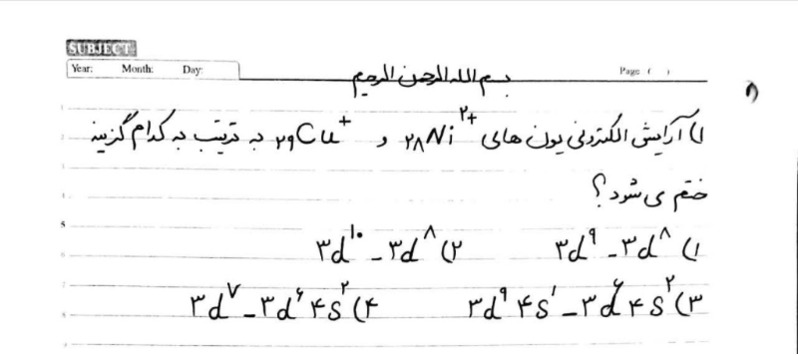 SUBJECT
Year: Month: Day:
بسم الله الرحمن الرحیم
Page ( )
۱) آرایش الکترونی یون های ₂₈Ni²⁺ و ₂₉Cu⁺ به ترتیب به کدام گزینه
ختم می شود؟
۱) ۳d⁸ - ۳d⁹ ۲) ۳d⁸ - ۳d¹⁰
۳) ۳d⁶ ۴s² - ۳d⁹ ۴s¹ ۴) ۳d⁶ ۴s² - ۳d⁷